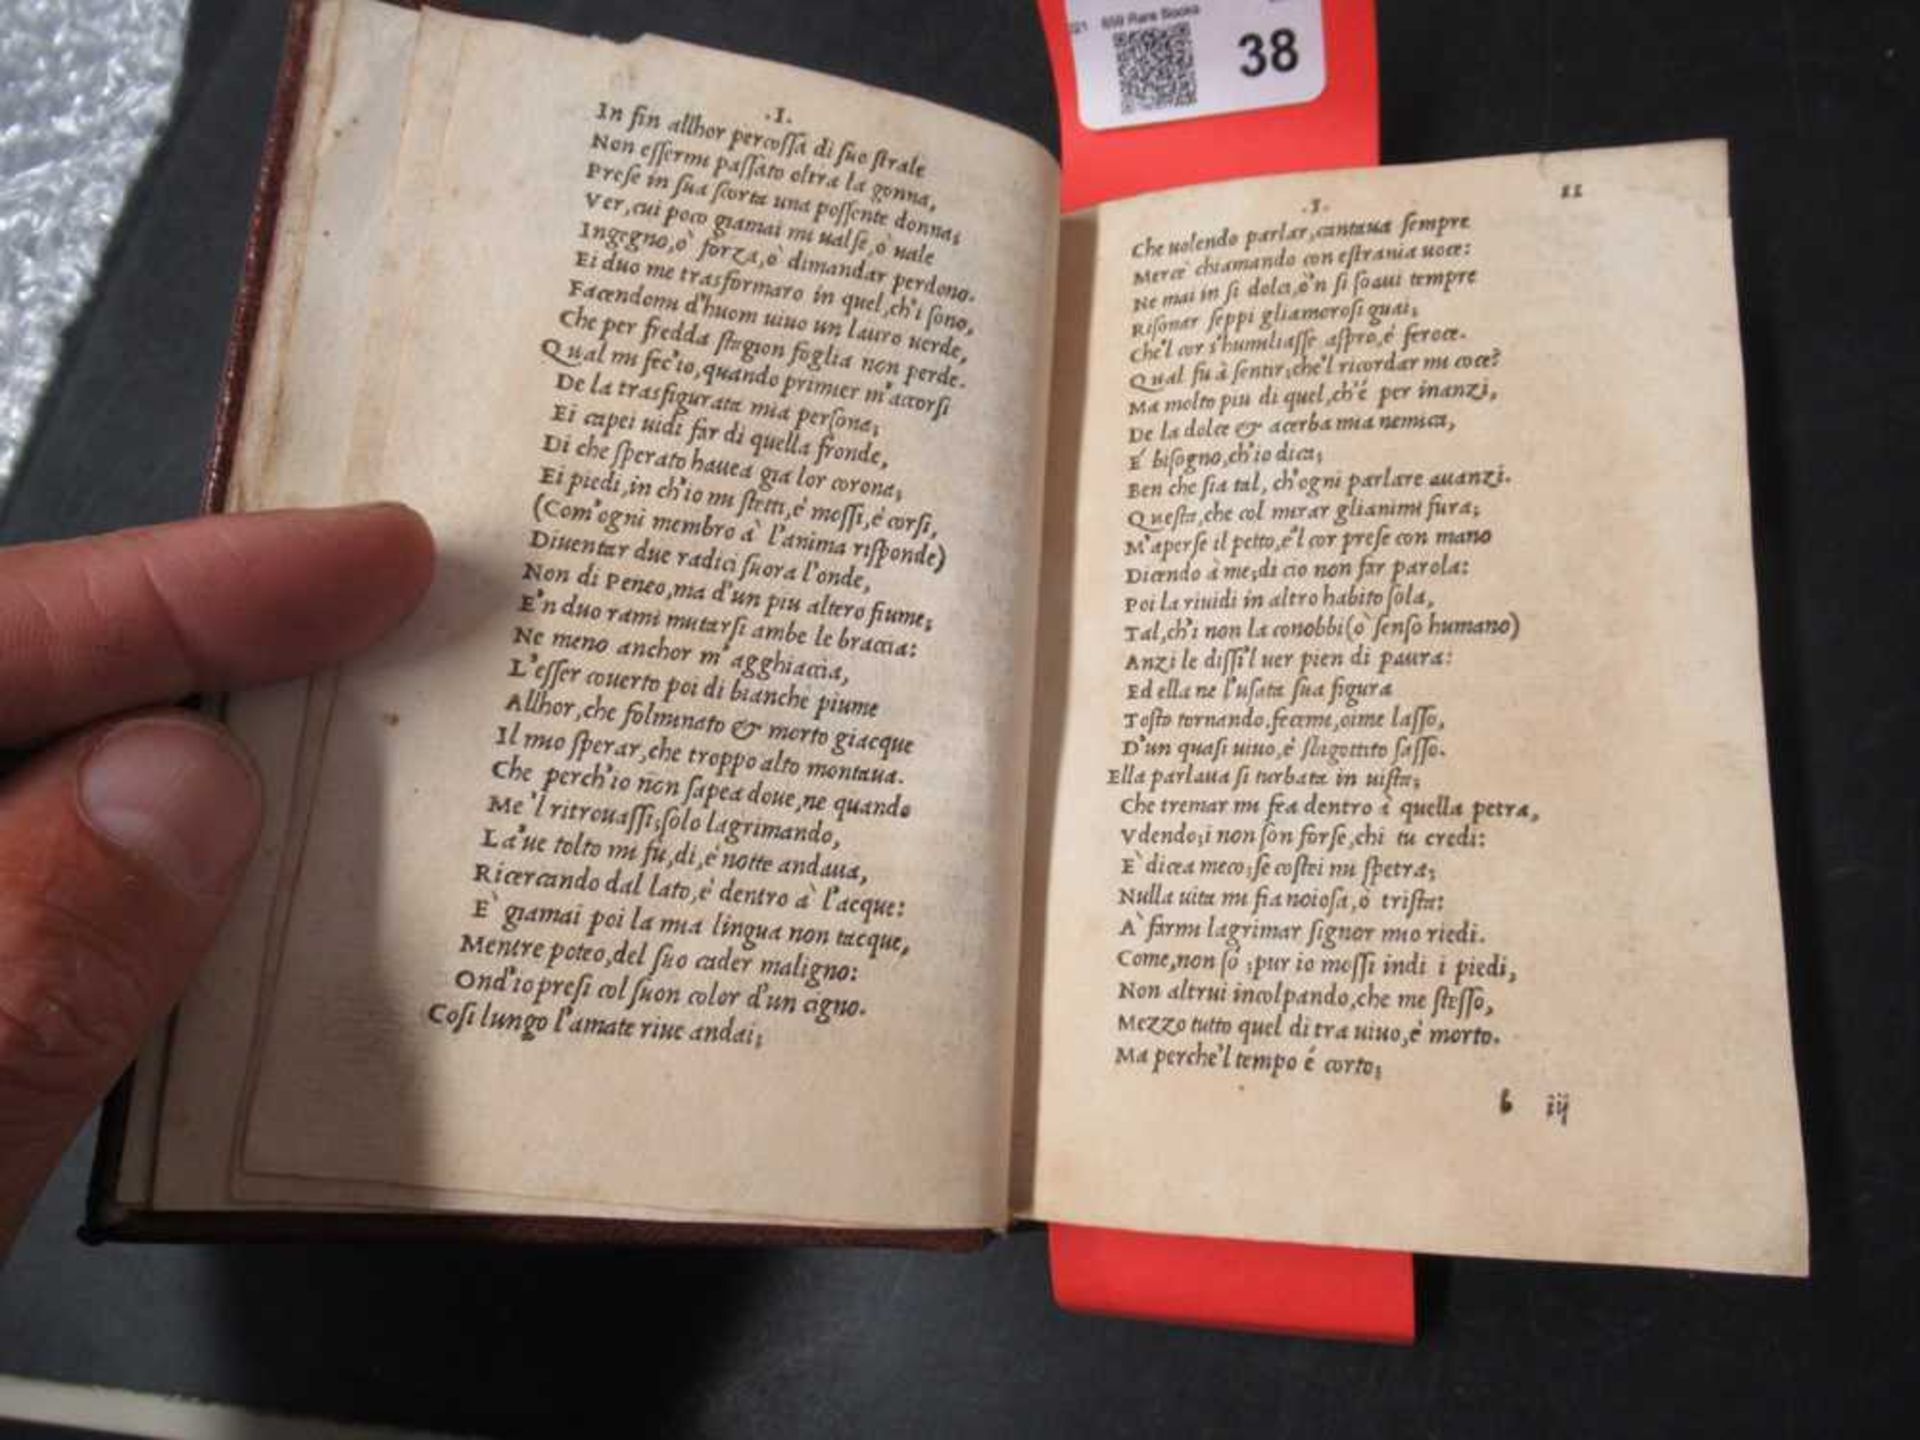 .I.
In fin allhor percoſſa di ſuo ſtrale
Non eſſermi paſſato oltra la gonna,
Preſe in ſua ſcorta una poſſente donna;
Ver, cui poco giamai mi ualſe, ò uale
Ingegno, ò forza, ò dimandar perdono.
Ei duo me trasformaro in quel, ch'i ſono,
Facendomi d'huom uiuo un lauro uerde,
Che per fredda ſtagion foglia non perde.
Qual mi fec'io, quando primier m'accorſi
De la trasfigurata mia perſona;
Ei capei uidi far di quella fronde,
Di che ſperato hauea gia lor corona;
Ei piedi, in ch'io mi ſtetti, é moſſi, é corſi,
(Com'ogni membro à l'anima riſponde)
Diuentar due radici ſuora l'onde,
Non di Peneo, ma d'un piu altero fiume;
E'n duo rami mutarſi ambe le braccia:
Ne meno anchor m'agghiaccia,
L'eſſer couerto poi di bianche piume
Allhor, che folminato & morto giacque
Il mio ſperar, che troppo alto montaua.
Che perch'io non ſapea doue, ne quando
Me 'l ritrouaſſi; ſolo lagrimando,
La'ue tolto mi fu, di, é notte andaua,
Ricercando dal lato, é dentro à l'acque:
E` giamai poi la mia lingua non tacque,
Mentre poteo, del ſuo cader maligno:
Ond'io preſi col ſuon color d'un cigno.
Coſi lungo l'amate riue andai;
.I. 11
Che uolendo parlar, cantaua ſempre
Merce chiamando con eſtrania uoce:
Ne mai in ſi dolci, ò'n ſi ſoaui tempre
Riſonar ſeppi gliamoroſi guai;
Che'l cor s'humiliaſſe aſpro, é feroce.
Qual fu à ſentir; che'l ricordar mi coce?
Ma molto piu di quel, ch'é per inanzi,
De la dolce & acerba mia nemica,
É biſogno, ch'io dica;
Ben che ſia tal, ch'ogni parlare auanzi.
Queſta, che col mirar glianimi fura;
M'aperſe il petto, e'l cor preſe con mano
Dicendo à me; di cio non far parola:
Poi la riuidi in altro habito ſola,
Tal, ch'i non la conobbi (ò ſenſo humano)
Anzi le diſſi'l uer pien di paura:
Ed ella ne l'uſata ſua figura
Toſto tornando, fecemi, oime laſſo,
D'un quaſi uiuo, é sbigottito ſaſſo.
Ella parlaua ſi turbata in uiſta;
Che tremar mi fea dentro à quella petra,
Vdendo; i non ſon forſe, chi tu credi:
E` dicea meco; ſe coſtei mi ſpetra;
Nulla uita mi fia noioſa, ò triſta:
A` farmi lagrimar ſignor mio riedi.
Come, non ſò; pur io moſſi indi i piedi,
Non altrui incolpando, che me ſteſſo,
Mezzo tutto quel di tra uiuo, é morto.
Ma perche'l tempo é corto;
b iij
Rare Books
38